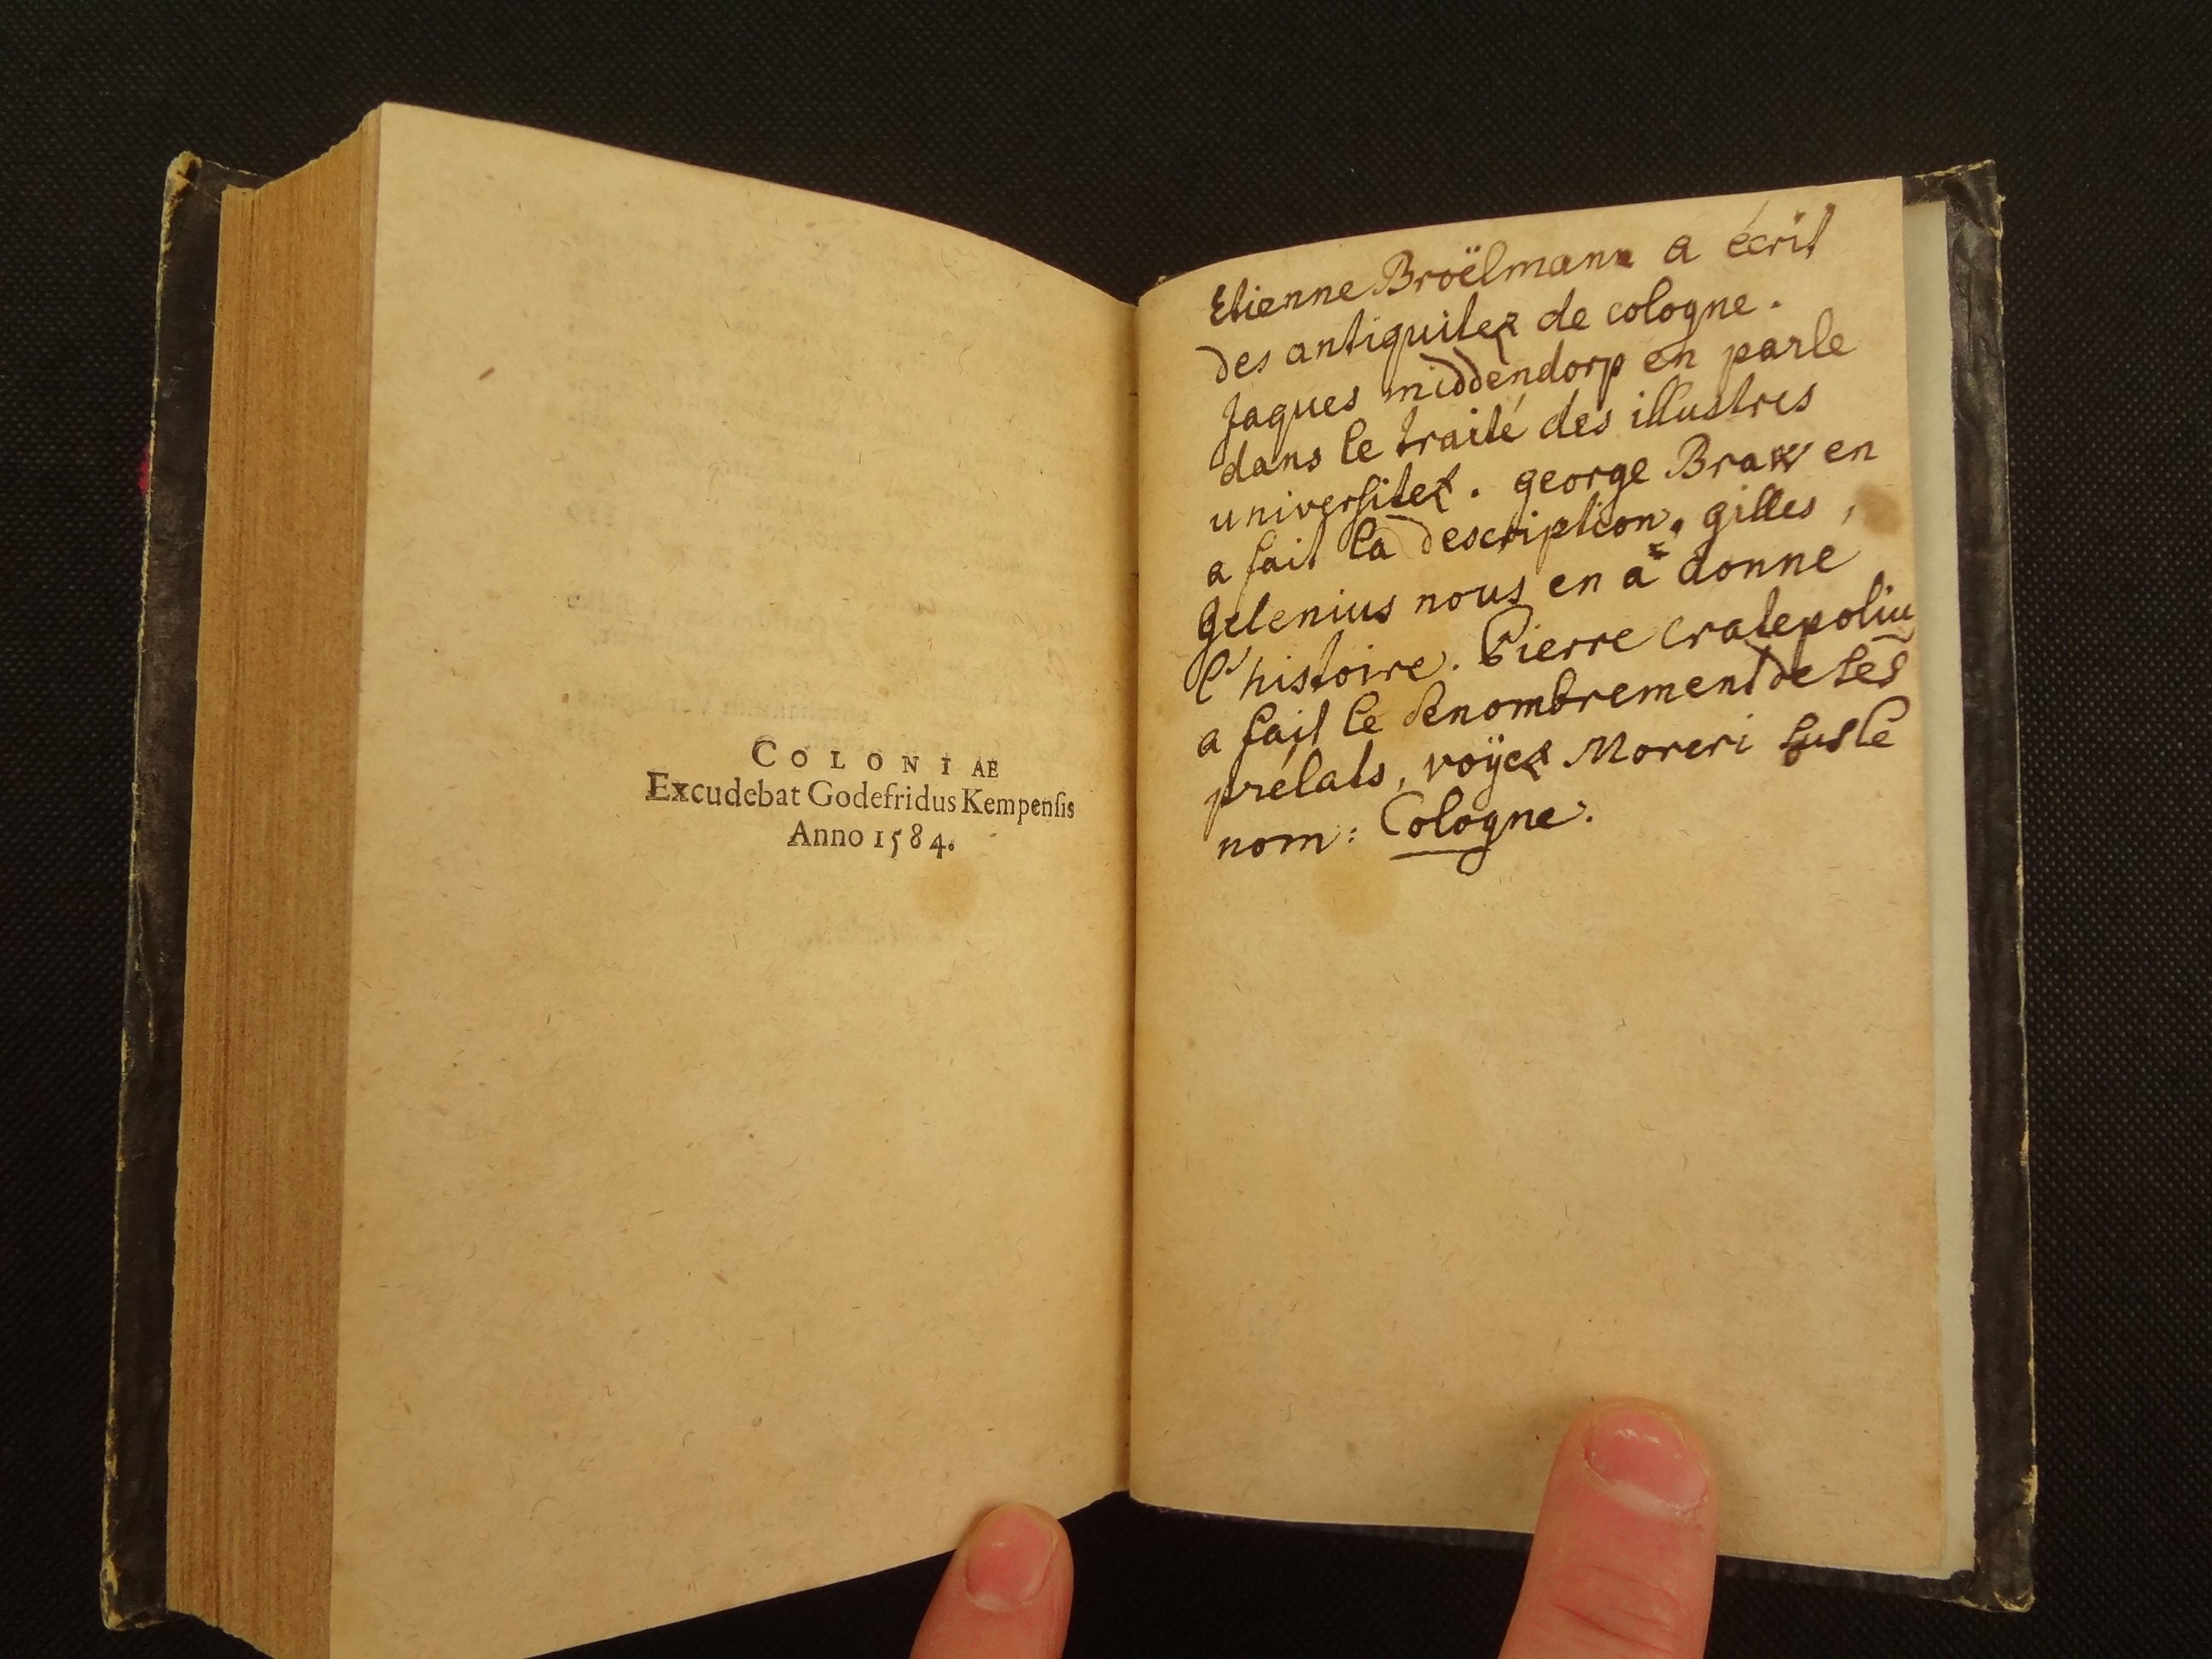 COLONIAE
Excudebat Godefridus Kempenſis
Anno 1584.
Etienne Broëlmann a écrit
des antiquitez de cologne.
Jaques middendorp en parle
dans le traité des illustres
universitez. george Braw en
a fait la description, gilles
gelenius nous en a donne
l'histoire. Pierre cratepoliu
a fait le denombrement de ses
prélats, voÿez Moreri sus le
nom: Cologne.